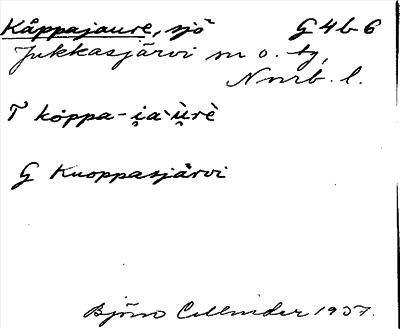 Kåppajaure, sjö G4b6
Jukkasjärvi sn o. tg,
Nnrb. l.
T kȯppa-i̯a`ù̯rè
G Kuoppasjärvi
Björn Collinder 1937.